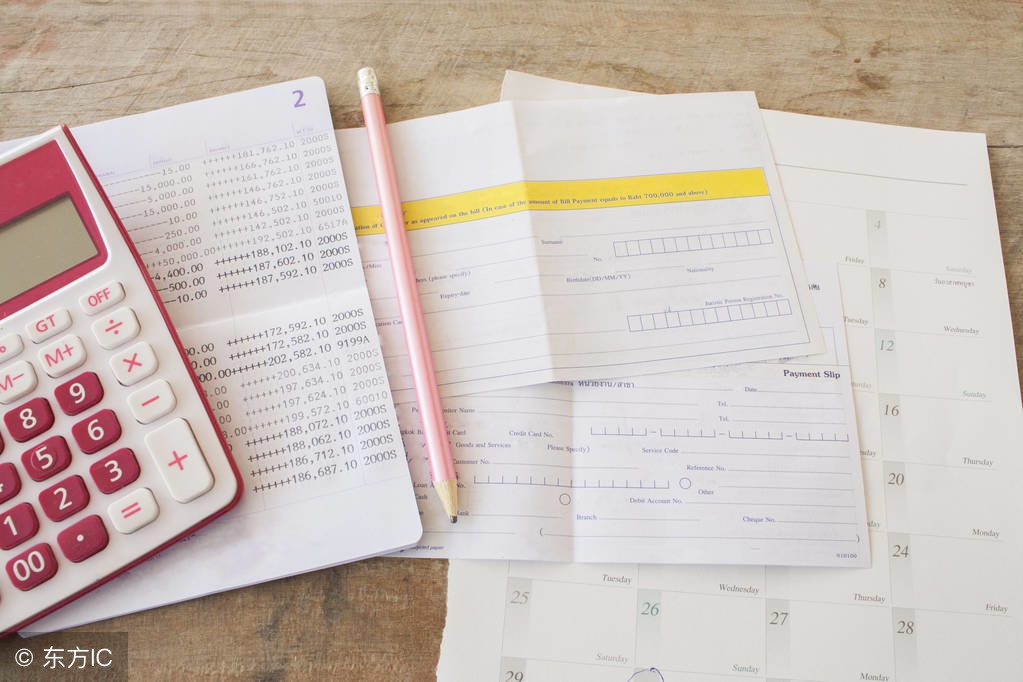 2
-15.00 ++++++181,762.10 2000S
-15,000.00 ++++++166,762.10 2000S
-5,000.00 ++++++161,762.10 2000S
-15,000.00 ++++++146,762.10 2000S
-10.00 ++++++146,752.10 2000S
-250.00 ++++++146,502.10 5010
-4,000.00 ++++++142,502.10 2000S
++50,000.00++++++192,502.10 6517A
-4,400.00 ++++++188,102.10 2000S
-500.00 ++++++187,602.10 2000S
-10.00 ++++++187,592.10 2000S
++++++172,592.10 2000S
++++++172,582.10 2000S
++++++202,582.10 9199A
++++++200,634.10 2000S
++++++197,634.10 2000S
++++++197,624.10 2000S
++++++199,572.10 60010
++++++188,072.10 2000S
++++++188,062.10 2000S
++++++186,712.10 2000S
++++++186,687.10 2000S
OFF
GT
÷
M+
×
M−
9
−
8
6
+
5
3
2
=
1
•
00
as appeared on the bill (In case of the amount of Bill Payment equals to Baht 700,000 and above)
Surname
No.
(please specify)
Birthdate(DD/MM/YY)
Nationality
Expiry-date
Juristic Person Registration No.
Payment Slip
Date
Tel.
Tel.
Name
Credit Card No.
Goods and Services
Please Specify)
Service Code
Customer No.
Reference No.
Other
Debit Account No.
Branch
Cheque No.
paper
4
Friday
Saturday
8
วันอาสาฬหบูชา
Tuesday
Wednesday
12
Sunday
16
Thursday
20
Monday
24
Tuesday
Wednesday
Thursday
Friday
25
26
27
28
Saturday
Sunday
Monday
29
© 东方IC